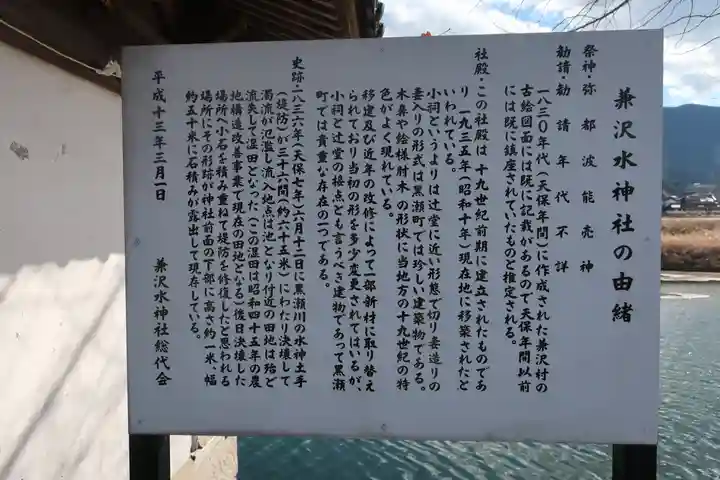 兼沢水神社の由緒
祭神・弥都波能売神
勧請・勧請年代不詳
一八三〇年代(天保年間)に作成された兼沢村の
古絵図面には既に記載があるので天保年間以前
には既に鎮座されていたものと推定される。
社殿・この社殿は十九世紀前期に建立されたものであ
り一九三五年(昭和十年)現在地に移築されたと
いわれている。
小祠というよりは辻堂に近い形態で切り妻造りの
妻入りの形式は黒瀬町では珍しい建築物である。
木鼻や絵様肘木の形状に当地方の十九世紀の特
色がよく現れている。
移建及び近年の改修によって一部新材に取り替え
られており当初の形を多少変更されてはいるが、
小祠と辻堂の接点とも言うべき建物であって黒瀬
町では貴重な存在の一つである。
史跡・一八三六年(天保七年)六月十二日に黒瀬川の水神土手
(堤防)が三十六間(約六十五米)にわたり決壊して
濁流が氾濫し流入地点は池となり付近の田地は殆ど
流失して湿田となった(この湿田は昭和四十五年の農
地構造改善事業で現在の田地となる)後日決壊した
場所へ小石を積み重ねて堤防を修復したと思われる
場所にその形跡が神社前面の下部に高さ約一米、幅
約五十米に石積みが露出して現存している。
平成十三年三月一日
兼沢水神社総代会